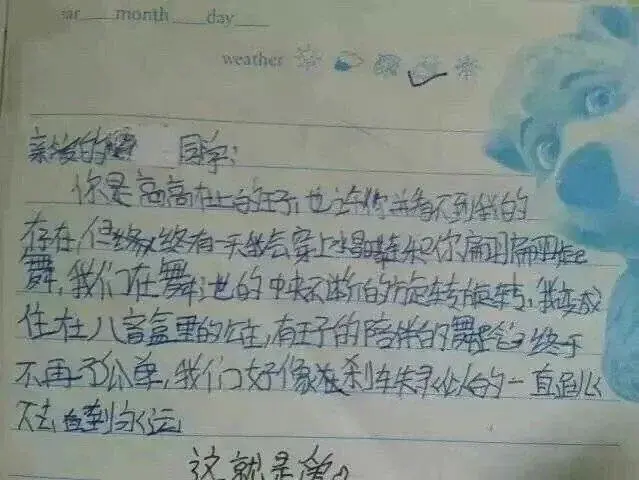 ear month day
weather
亲爱的 同学:
你是高高在上的王子,也许你并看不到我的
存在,但 终有一天我会穿上水晶鞋和你翩翩起
舞,我们在舞池的中央不断的旋转旋转,我变成
住在八音盒里的公主,有王子的陪伴的舞蹈终于
不再孤单,我们好像 刹车失灵似的一直跳下
去,直到永远
这就是爱。